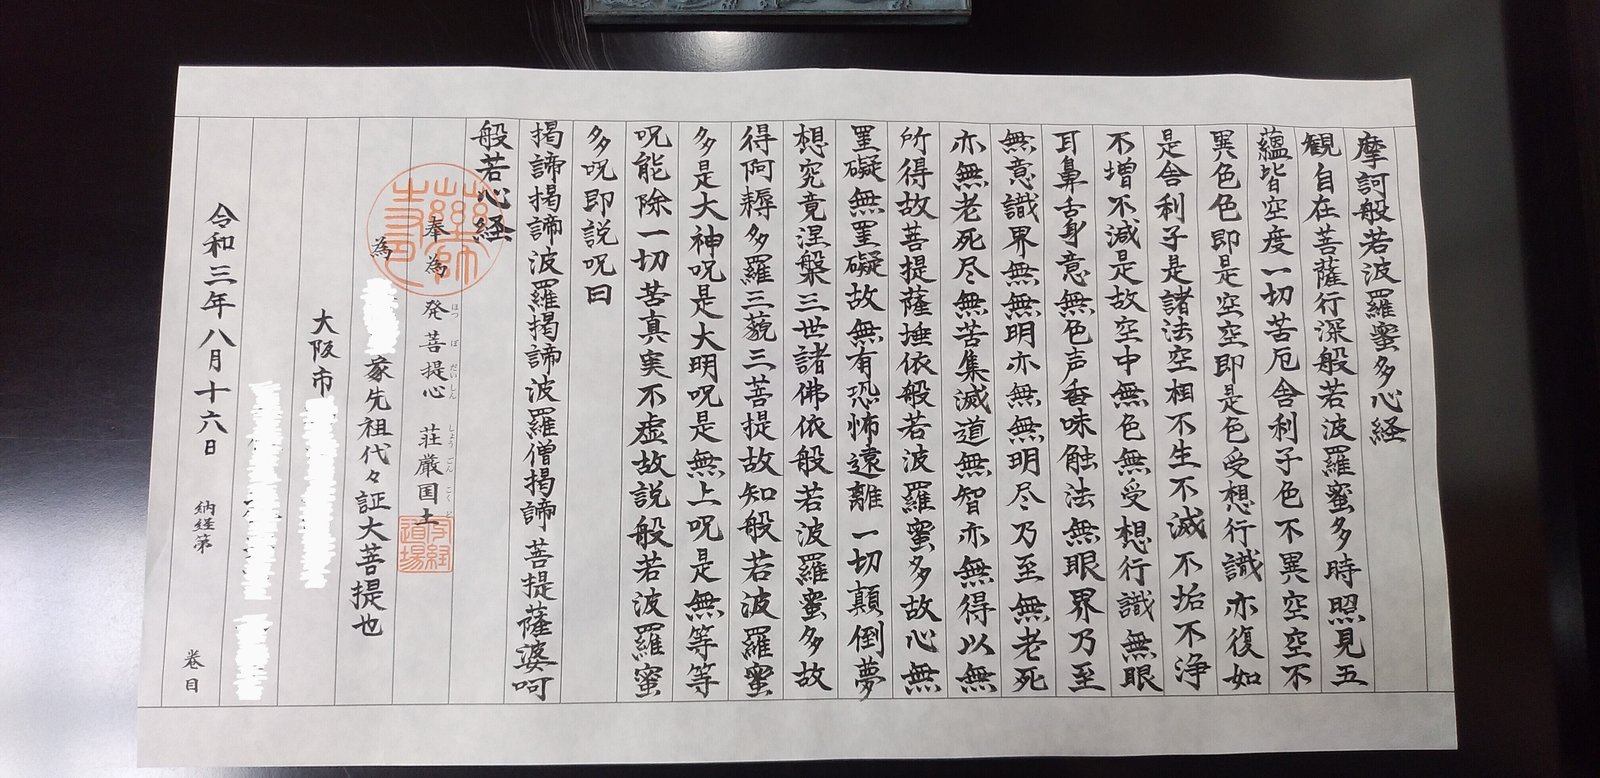 摩訶般若波羅蜜多心経
観自在菩薩行深般若波羅蜜多時照見五
蘊皆空度一切苦厄舎利子色不異空空不
異色色即是空空即是色受想行識亦復如
是舎利子是諸法空相不生不滅不垢不浄
不増不減是故空中無色無受想行識無眼
耳鼻舌身意無色声香味触法無眼界乃至
無意識界無無明亦無無明尽乃至無老死
亦無老死尽無苦集滅道無智亦無得以無
所得故菩提薩埵依般若波羅蜜多故心無
罣礙無罣礙故無有恐怖遠離一切顛倒夢
想究竟涅槃三世諸佛依般若波羅蜜多故
得阿耨多羅三藐三菩提故知般若波羅蜜
多是大神呪是大明呪是無上呪是無等等
呪能除一切苦真実不虚故説般若波羅蜜
多呪即説呪曰
掲諦掲諦波羅掲諦波羅僧掲諦 菩提薩婆呵
般若心経
奉為 発菩提心 荘厳国土
ほつ ぼ だい しん しょう ごん こく ど
為 家先祖代々証大菩提也
大阪市
令和三年八月十六日 納経第 巻目
薬師寺
写経道場